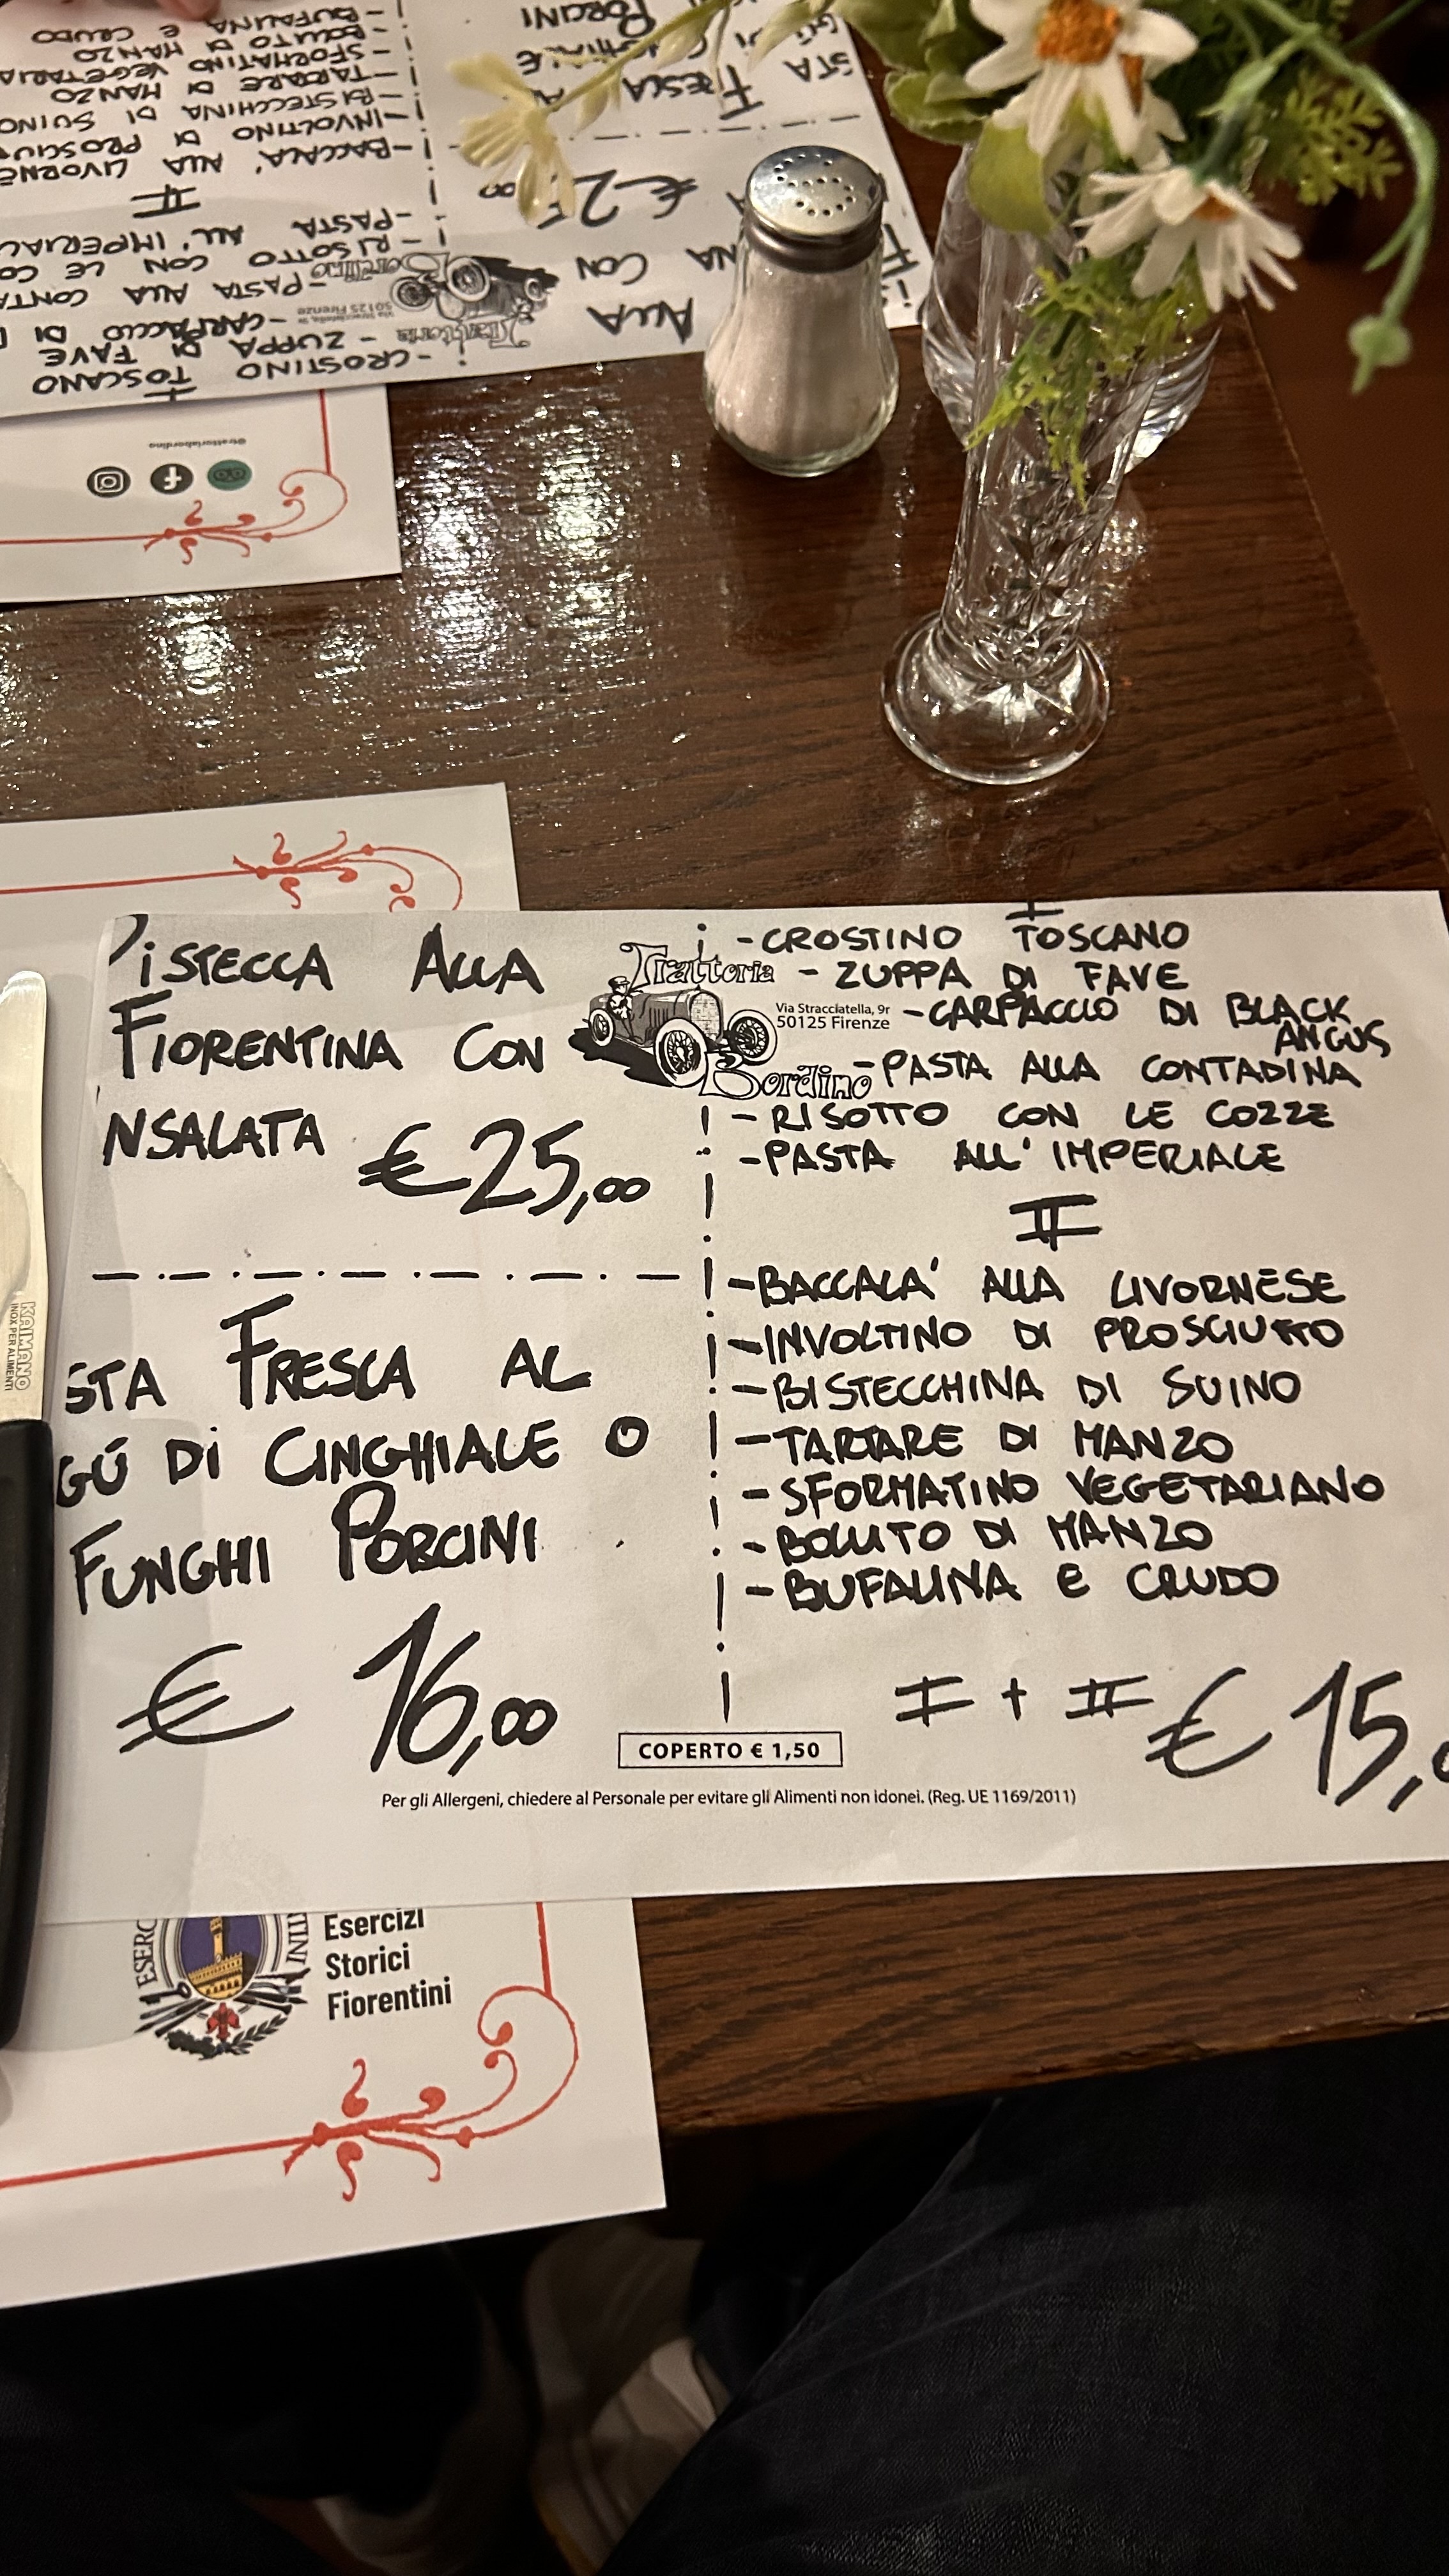 BUFALINA E CRUDO
BOLLITO DI MANZO
SFORMATINO VEGETARIA
TARTARE DI MANZO
BISTECCHINA DI SUINO
INVOLTINO DI PROSCIU
BACCALA' ALLA LIVORNE
II
PASTA ALL'IMPERIAL
RISOTTO CON LE CO
PASTA ALLA CONTA
CARPACCIO DI
ZUPPA DI FAVE
CROSTINO TOSCANO
STA FRESCA A
PORCINI
€ 25
NA CON
ALLA
Trattoria
Bordino
Via Stracciatella, 9r
50125 Firenze
@trattoriabordino
ISTECCA ALLA
FIORENTINA CON
NSALATA €25,00
STA FRESCA AL
GÚ DI CINGHIALE O
FUNGHI PORCINI
€ 16,00
Trattoria
Via Stracciatella, 9r
50125 Firenze
Bordino
I
- CROSTINO TOSCANO
- ZUPPA DI FAVE
- CARPACCIO DI BLACK
ANGUS
- PASTA ALLA CONTADINA
- RISOTTO CON LE COZZE
- PASTA ALL'IMPERIALE
II
- BACCALA' ALLA LIVORNESE
- INVOLTINO DI PROSCIUTTO
- BISTECCHINA DI SUINO
- TARTARE DI MANZO
- SFORMATINO VEGETARIANO
- BOLLITO DI MANZO
- BUFALINA E CRUDO
I + II € 15,
COPERTO € 1,50
Per gli Allergeni, chiedere al Personale per evitare gli Alimenti non idonei. (Reg. UE 1169/2011)
KAIMANO
INOX PER ALIMENTI
ESERC
TINI
Esercizi
Storici
Fiorentini